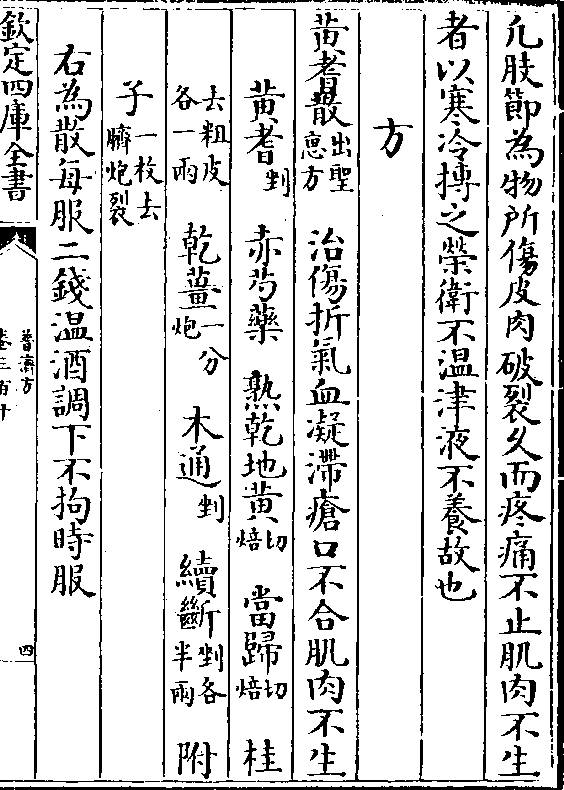 凢肢節為物所傷皮肉破裂久而疼痛不止肌肉不生
者以寒冷搏之榮衛不温津液不養故也
方
黄耆散出聖惠方 治傷折氣血凝滯瘡口不合肌肉不生
黄耆剉 赤芍藥 熟乾地黄切焙 當歸切焙 桂
去粗皮各一兩 乾薑一分炮 木通剉 續斷剉各半兩 附
子一枚去臍炮裂
右為散每服二錢温酒調下不拘時服
欽定四庫全書
普濟方
卷三百十
四